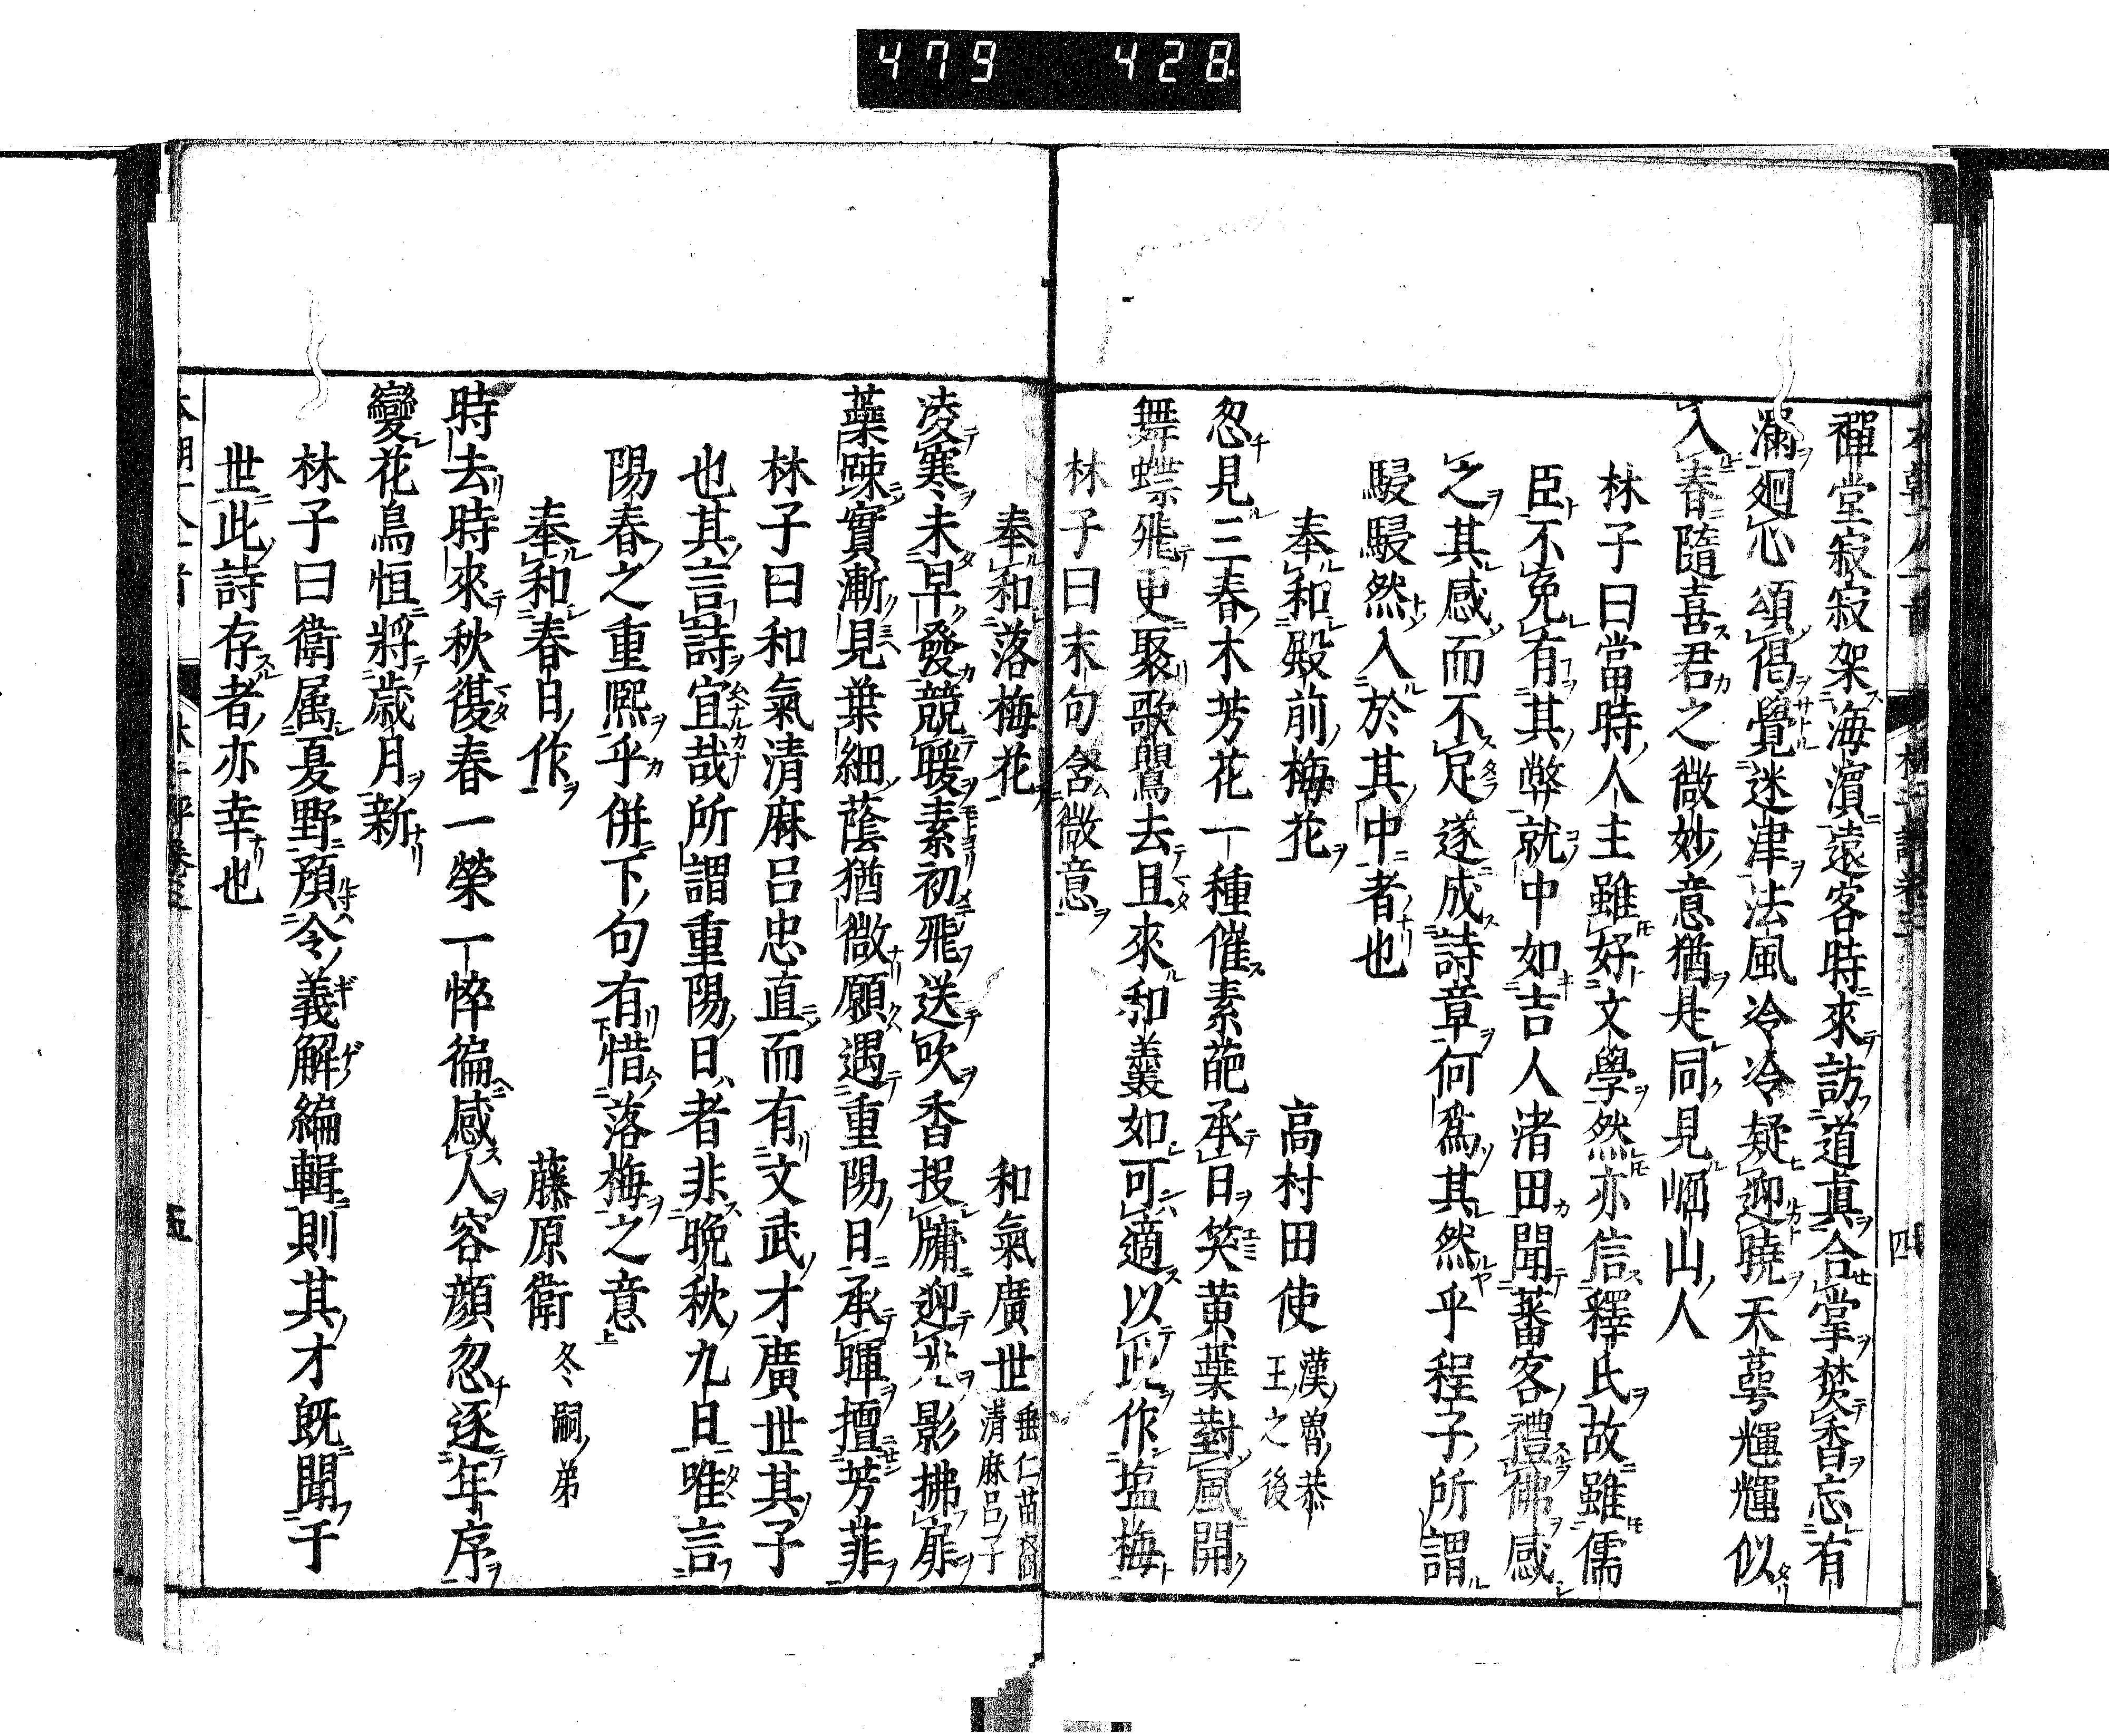 479 428
禪堂寂寂架海濱遠客時來訪道眞合掌焚香忘有
漏廻心頌偈覺迷津法風冷冷疑迎曉天萼輝輝似
入春隨喜君之微妙意猶是同見崛山人
林子曰當時人主雖好文學然亦信釋氏故雖儒
臣不免有其弊就中如吉人渚田聞蕃客禮佛感
之其感而不足遂成詩章何爲其然乎程子所謂
駸駸然入於其中者也
奉和殿前梅花
高村田使
漢曾恭
王之後
忽見三春木芳花一種催素葩承日笑黃蘂對風開
舞蝶飛更聚歌鶯去且來和羹如可適以此作塩梅
林子曰末句含微意
四
奉和落梅花
和氣廣世
垂仁苗裔
清麻呂子
凌寒未早發競暖素初飛送吹香投牖迎光影拂扉
蘂踈實漸見葉細蔭猶微願遇重陽日承暉擅芳菲
林子曰和氣清麻呂忠直而有文武才廣世其子
也其言詩宜哉所謂重陽日者非晚秋九日唯言
陽春之重熈乎併下句有惜落梅之意
奉和春日作
藤原衛
冬嗣弟
時去時來秋復春一榮一悴徧感人容顔忽逐年序
變花鳥恒將歳月新
林子曰衛属夏野預令義解編輯則其才既聞于
世此詩存者亦幸也
五